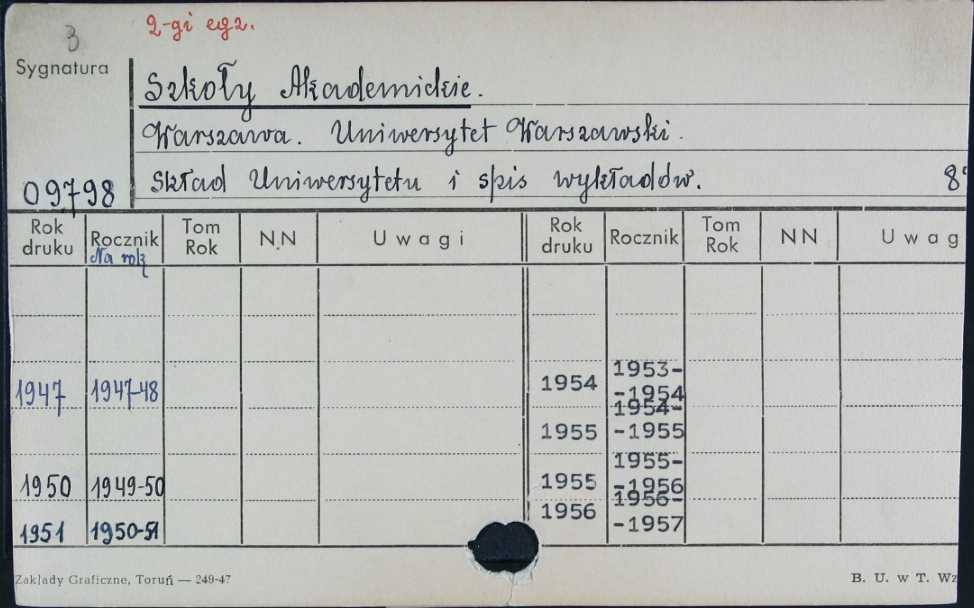 3
2-gi egz.
Sygnatura
Szkoły Akademickie.
Warszawa. Uniwersytet Warszawski.
09798 Skład Uniwersytetu i spis wykładów. 8°
Rok druku Rocznik Tom Rok N.N Uwagi Rok druku Rocznik Tom Rok NN Uwag
Na rok
1947 1947-48 1954 1953--1954
1955 1954--1955
1950 1949-50 1955 1955--1956
1951 1950-51 1956 1956--1957
Zakłady Graficzne, Toruń — 249-47 B. U. w T. Wz